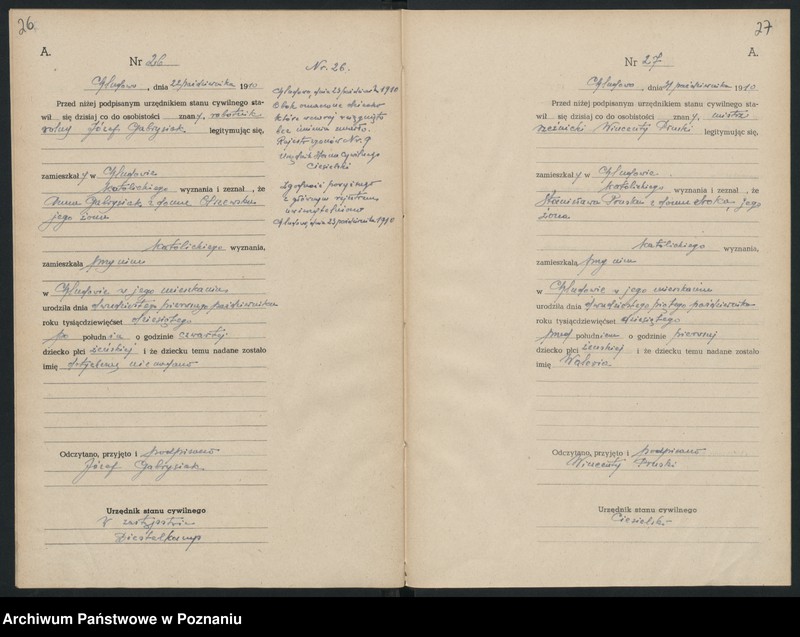 26
A.
Nr 26
, dnia 22 października 1910
Przed niżej podpisanym urzędnikiem stanu cywilnego sta-
wił się dzisiaj co do osobistości znany, robotnik
rolny Józef Gabrysiak legitymując się,
zamieszkały w
katolickiego wyznania i zeznał , że
Anna Gabrysiak z domu
jego żona
katolickiego wyznania,
zamieszkała przy nim
w w jego mieszkaniu
urodziła dnia dwudziestego pierwszego października
roku tysiącdziewięćset dziesiątego
po południu o godzinie czwartej
dziecko płci żeńskiej i że dziecku temu nadane zostało
imię nie nadano
Odczytano, przyjęto i podpisano
Józef Gabrysiak
Urzędnik stanu cywilnego
w zastępstwie
Diestelkamp
Nr. 26.
dnia 23 października 1910
bez imienia zmarło.
Nr. 9
Urzędnik Stanu Cywilnego
Ciesielski
Zgodność powyższego
z głównym rejestrem
dnia 23 października 1910
27
A.
Nr 27
, dnia 31 października 1910
Przed niżej podpisanym urzędnikiem stanu cywilnego sta-
wił się dzisiaj co do osobistości znany, mistrz
rzeźnicki Wincenty Pruski legitymując się,
zamieszkały w
katolickiego wyznania i zeznał , że
Stanisława Pruska z domu jego
żona
katolickiego wyznania,
zamieszkała przy nim
w w jego mieszkaniu
urodziła dnia dwudziestego piątego października
roku tysiącdziewięćset dziesiątego
przed południem o godzinie pierwszej
dziecko płci żeńskiej i że dziecku temu nadane zostało
imię Waleria
Odczytano, przyjęto i podpisano
Wincenty Pruski
Urzędnik stanu cywilnego
Ciesielski
Archiwum Państwowe w Poznaniu